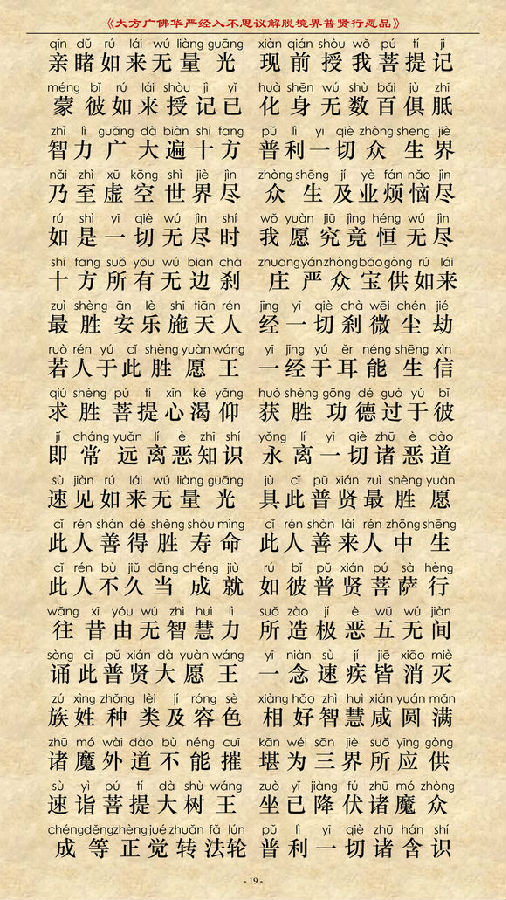 《大方广佛华严经入不思议解脱境界普贤行愿品》
qīn dǔ rú lái wú liàng guāng xiàn qián shòu wǒ pú tí jì
亲睹如来无量光 现前授我菩提记
méng bǐ rú lái shòu jì yǐ huà shēn wú shù bǎi jù zhī
蒙彼如来授记已 化身无数百俱胝
zhì lì guǎng dà biàn shí fāng pǔ lì yí qiè zhòng shēng jiè
智力广大遍十方 普利一切众生界
nǎi zhì xū kōng shì jiè jìn zhòng shēng jí yè fán nǎo jìn
乃至虚空世界尽 众生及业烦恼尽
rú shì yí qiè wú jìn shí wǒ yuàn jiū jìng héng wú jìn
如是一切无尽时 我愿究竟恒无尽
shí fāng suǒ yǒu wú biān chà zhuāng yán zhòng bǎo gòng rú lái
十方所有无边刹 庄严众宝供如来
zuì shèng ān lè shī tiān rén jīng yí qiè chà wēi chén jié
最胜安乐施天人 经一切刹微尘劫
ruò rén yú cǐ shèng yuàn wáng yì jīng yú ěr néng shēng xìn
若人于此胜愿王 一经于耳能生信
qiú shèng pú tí xīn kě yǎng huò shèng gōng dé guò yú bǐ
求胜菩提心渴仰 获胜功德过于彼
jí cháng yuǎn lí è zhī shí yǒng lí yí qiè zhū è dào
即常远离恶知识 永离一切诸恶道
sù jiàn rú lái wú liàng guāng jù cǐ pǔ xián zuì shèng yuàn
速见如来无量光 具此普贤最胜愿
cǐ rén shàn dé shèng shòu mìng cǐ rén shàn lái rén zhōng shēng
此人善得胜寿命 此人善来人中生
cǐ rén bù jiǔ dāng chéng jiù rú bǐ pǔ xián pú sà hèng
此人不久当成就 如彼普贤菩萨行
wǎng xī yóu wú zhì huì lì suǒ zào jí è wǔ wú jiàn
往昔由无智慧力 所造极恶五无间
sòng cǐ pǔ xián dà yuàn wáng yí niàn sù jí jiē xiāo miè
诵此普贤大愿王 一念速疾皆消灭
zú xìng zhǒng lèi jí róng sè xiàng hǎo zhì huì xián yuán mǎn
族姓种类及容色 相好智慧咸圆满
zhū mó wài dào bù néng cuī kān wéi sān jiè suǒ yìng gòng
诸魔外道不能摧 堪为三界所应供
sù yì pú tí dà shù wáng zuò yǐ jiàng fú zhū mó zhòng
速诣菩提大树王 坐已降伏诸魔众
chéng děng zhèng jué zhuǎn fǎ lún pǔ lì yí qiè zhū hán shí
成等正觉转法轮 普利一切诸含识